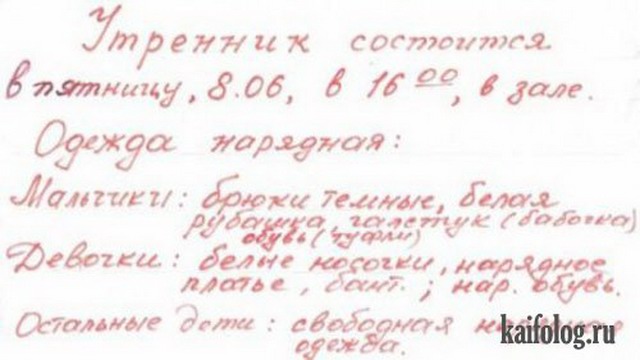 Утренник состоится
в пятницу, 8.06, в 16 00, в зале.
Одежда нарядная:
Мальчики: брюки темные, белая
рубашка, галстук (бабочка)
обувь (туфли)
Девочки: белые носочки, нарядное
платье, бант.; нар. обувь.
Остальные дети: свободная
одежда.
kaifolog.ru